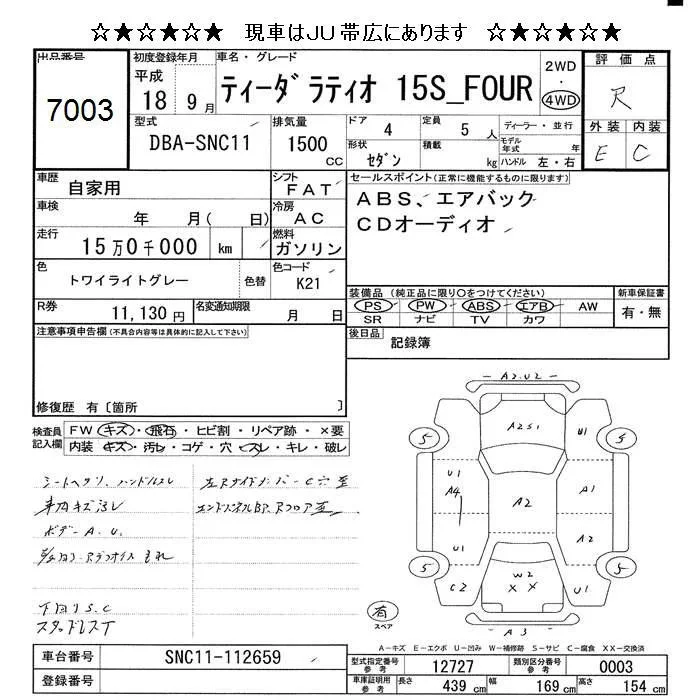 ☆★☆★☆★ 現車はJU帯広にあります ☆★☆★☆★
出品番号
7003
初度登録年月
平成
18 9月
車名・グレード
ティーダラティオ 15S_FOUR
2WD
・
4WD
評価点
R
外装 内装
E C
型式
DBA-SNC11
排気量
1500 CC
ドア 4
形状 セダン
定員 5 人
積載 kg
ディーラー・並行
モデル年式 年
ハンドル 左・右
車歴
自家用
シフト
FAT
セールスポイント(正常に機能するものに限ります)
ABS、エアバック
CDオーディオ
車検
年 月( 日)
冷房
AC
走行
15万0千000 km
燃料
ガソリン
色
トワイライトグレー
色替
色コード
K21
R券
11,130 円
名変通知期限
月 日
装備品 (純正品に限り○をつけてください)
PS PW ABS エアB AW
SR ナビ TV カワ
新車保証書
有・無
後日品
記録簿
注意事項申告欄(不具合内容等は具体的に記入して下さい)
修復歴 有〔箇所 〕
検査員記入欄
FW キズ・飛石・ヒビ割・リペア跡・×要
内装 キズ・汚レ・コゲ・穴・スレ・キレ・破レ
シートヘタリ、ハンドルスレ
車内キズ汚レ
ボデーA.U.
下回りS.C
スタッドレスT
A2.U2
A2S1
U1
U1
A4
A2
A1
U1
A2
C2
W2
X X
U1
A3
5
5
5
5
有
スペア
A-キズ E-エクボ U-凹み W-補修跡 S-サビ C-腐食 XX-交換済
車台番号
SNC11-112659
登録番号
型式指定番号 参考
12727
類別区分番号 参考
0003
車庫証明用 参考
長さ 439 cm
幅 169 cm
高さ 154 cm